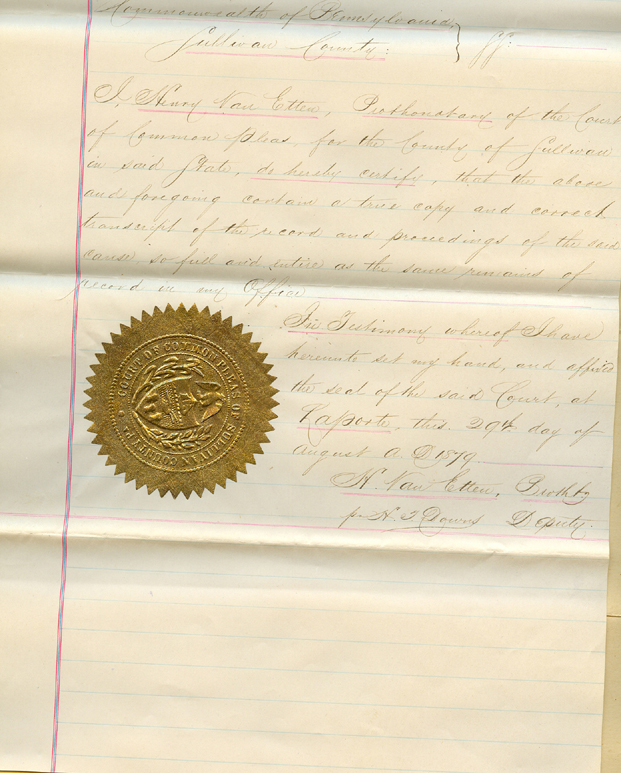 Commonwealth of Pennsylvania,
Sullivan County: } SS:
I, Henry Van Etten, Prothonotary of the Court
of Common Pleas, for the County of Sullivan
in said State, do hereby certify, that the above
and foregoing contain a true copy and correct
transcript of the record and proceedings of the said
cause so full and entire as the same remains of
record in my Office
In Testimony whereof I have
hereunto set my hand, and affixed
the seal of the said Court, at
Laporte, this 29th day of
August A D 1879
H Van Etten, Prothty
pr N. J Downs Deputy.
COURT OF COMMON PLEAS OF
SULLIVAN COUNTY PA